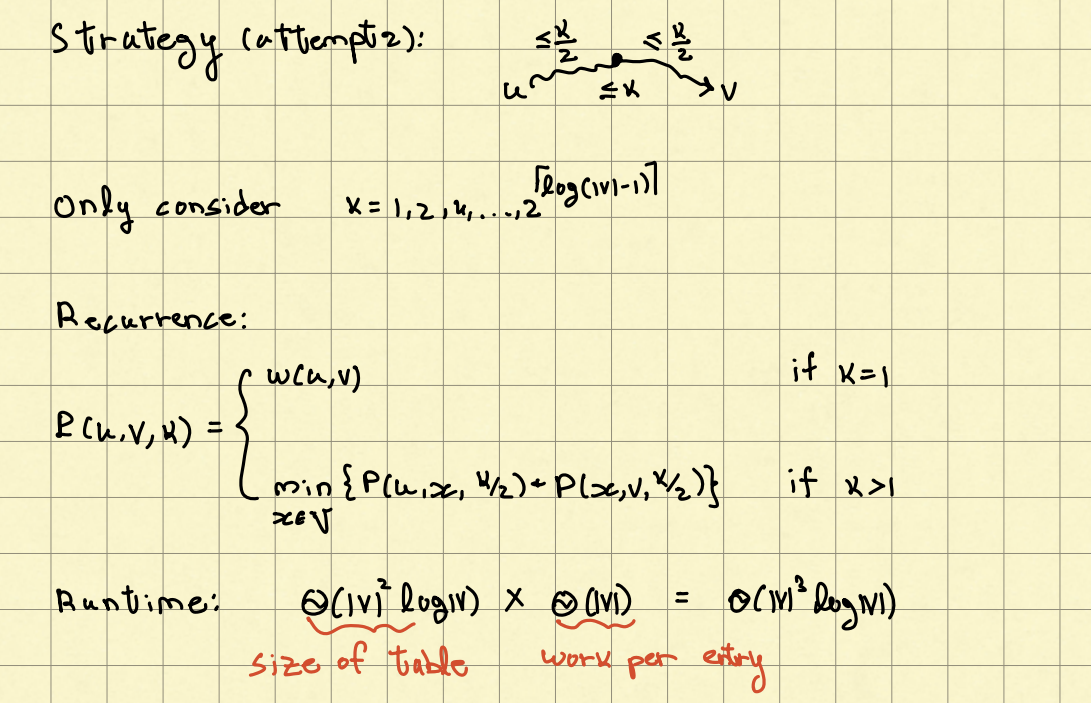 Strategy (attempt 2):
≤ k/2 ≤ k/2
u ≤ k v
Only consider k = 1, 2, 4, ..., 2^⌈log(|V|-1)⌉
Recurrence:
w(u,v) if k=1
P(u,v,k) = {
min {P(u,x, k/2) + P(x,v, k/2)} if k>1
x∈V
Runtime: Θ(|V|² log|V|) × Θ(|V|) = Θ(|V|³ log|V|)
size of table work per entry